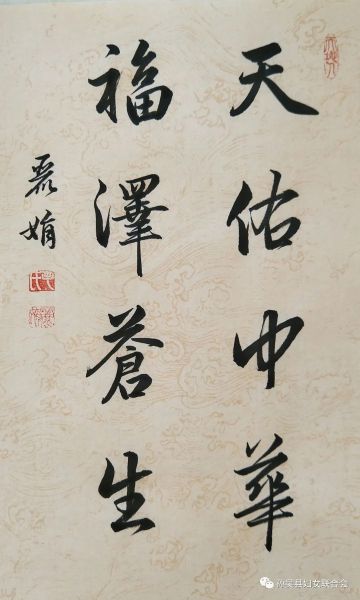 天佑中華
福澤蒼生
麗娟
孙吴县妇女联合会